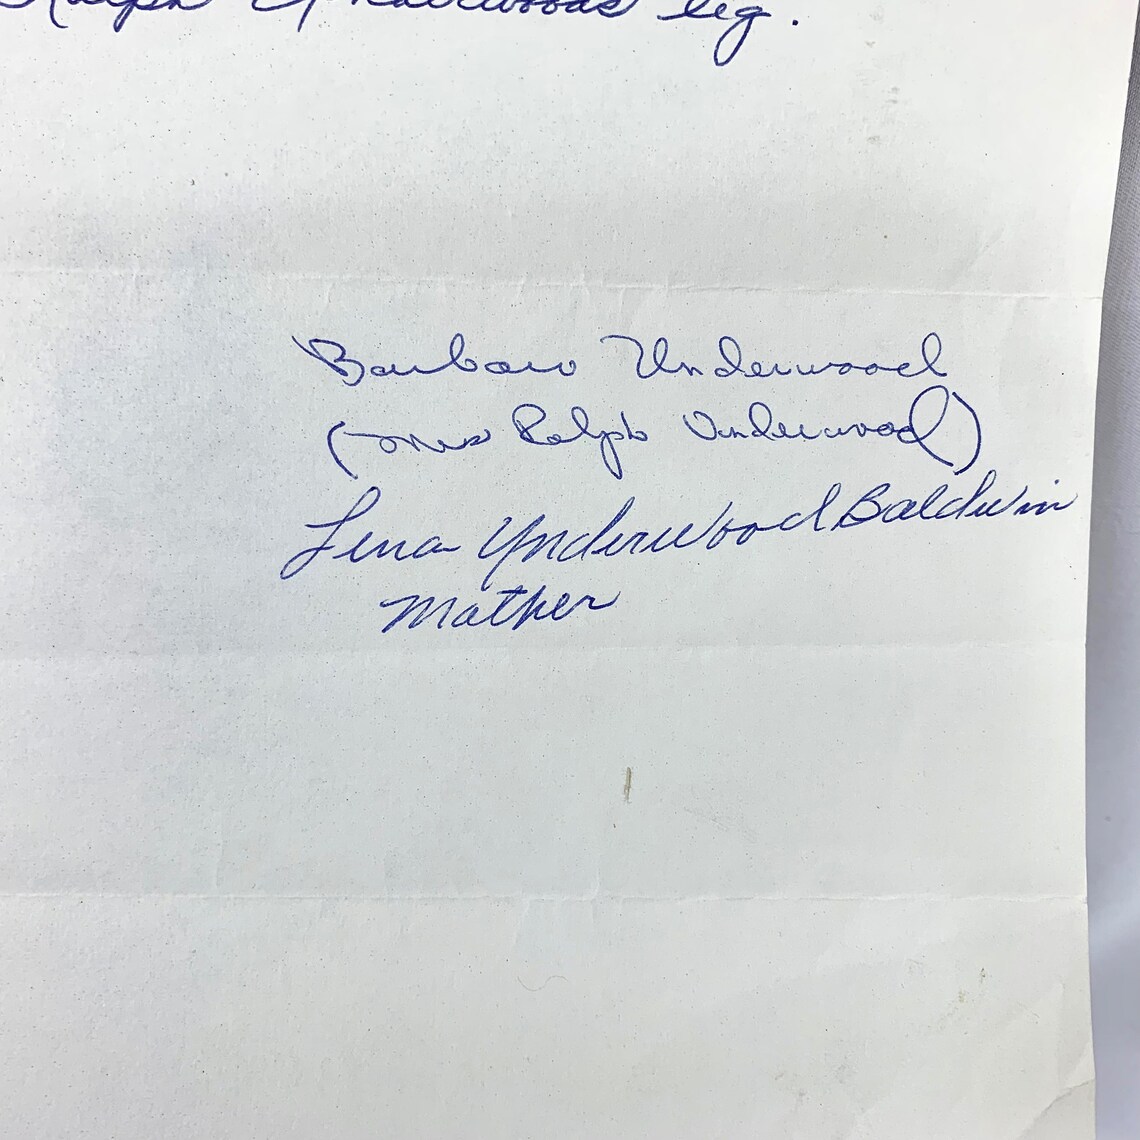 Ralph Underwoods leg.
Barbara Underwood
(Mrs Ralph Underwood)
Lena Underwood Baldwin
Mother